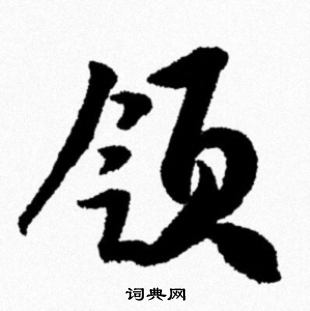 领
词典网